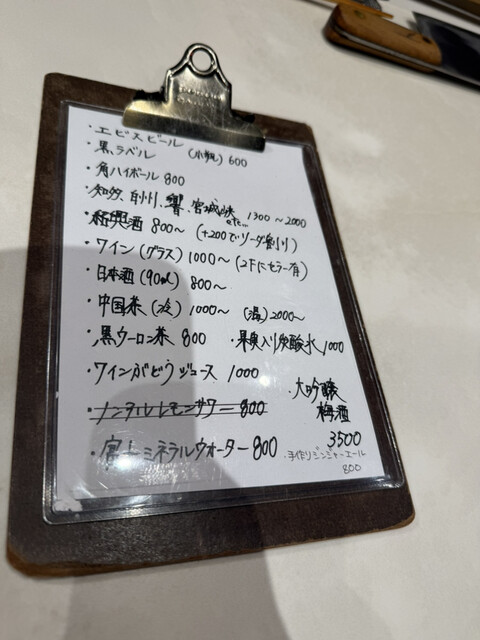 ・エビスビール
・黒ラベル (小瓶) 600
・角ハイボール 800
・知多、白州、響、宮城峡 etc... 1300~2000
・紹興酒 800~ (+200でソーダ割り)
・ワイン (グラス) 1000~ (2Fにセラー有)
・日本酒 (90ml) 800~
・中国茶 (冷) 1000~ (温) 2000~
・黒ウーロン茶 800 ・果実入り炭酸水 1000
・ワインぶどうジュース 1000
・大吟醸
梅酒
3500
・ノンアルレモンサワー 800
・富士ミネラルウォーター 800
・手作りジンジャーエール
800